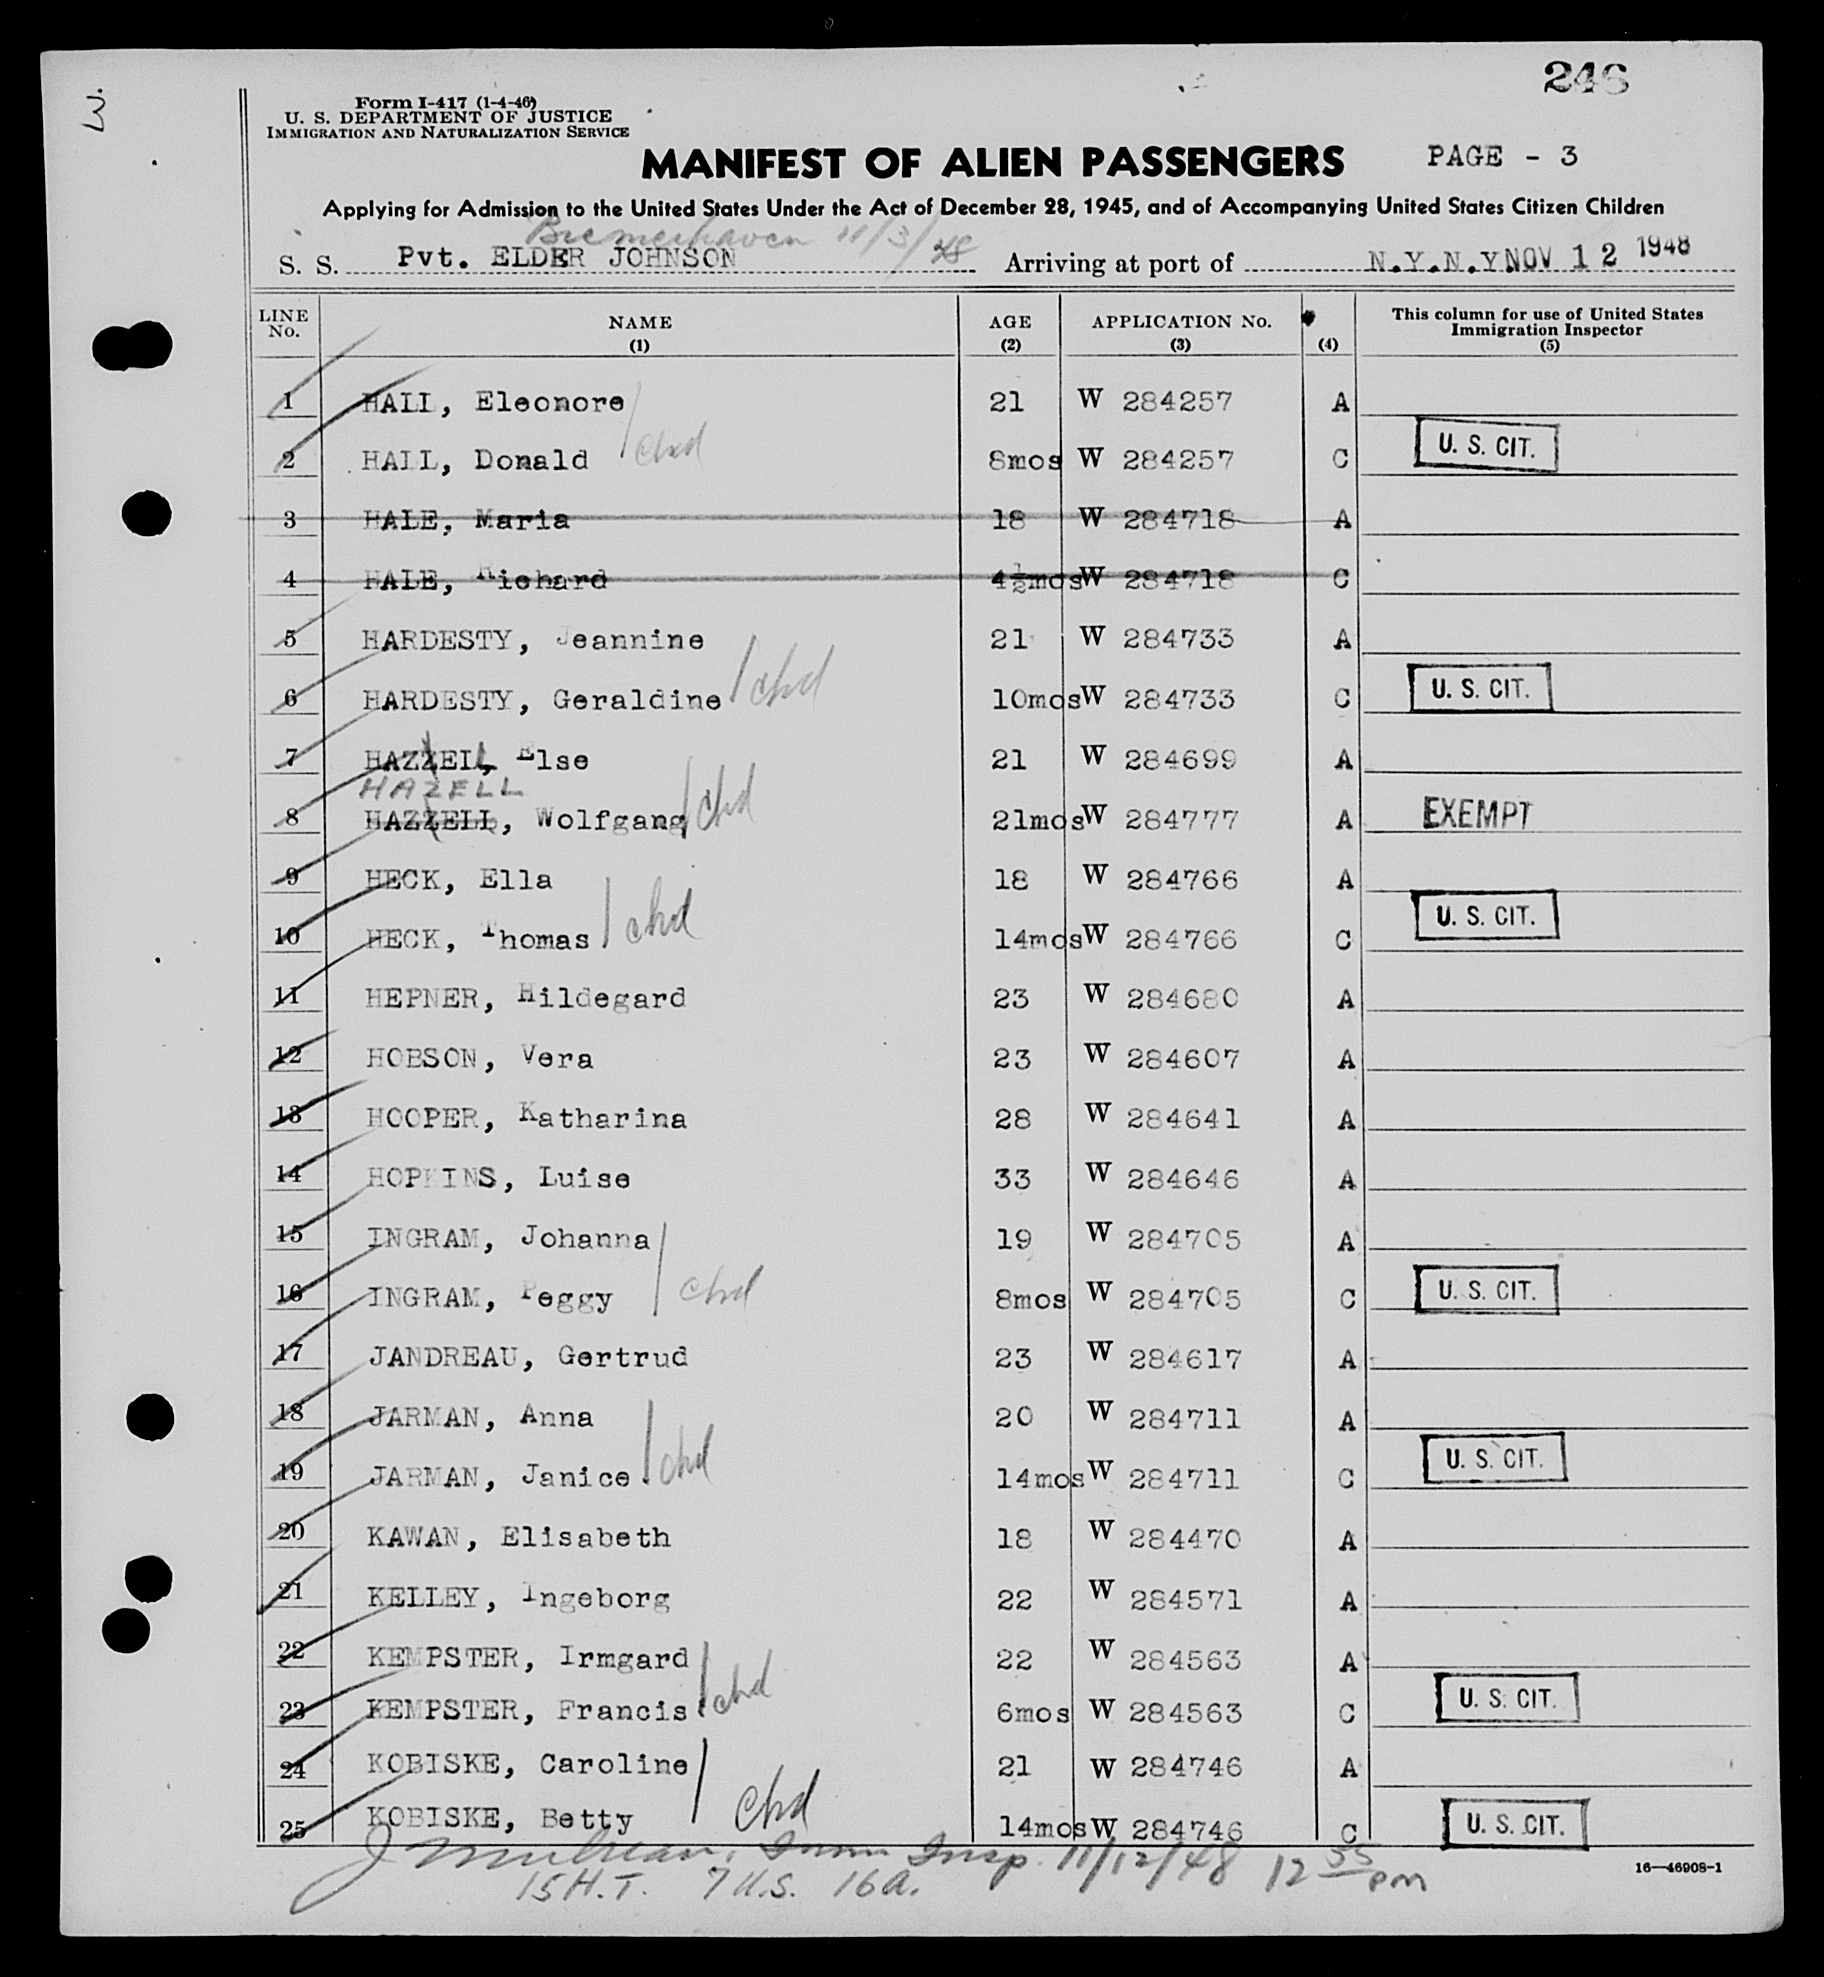 246
3.
Form I-417 (1-4-46)
U. S. DEPARTMENT OF JUSTICE
IMMIGRATION AND NATURALIZATION SERVICE
MANIFEST OF ALIEN PASSENGERS PAGE - 3
Applying for Admission to the United States Under the Act of December 28, 1945, and of Accompanying United States Citizen Children
Bremerhaven 11/3/48
S. S. Pvt. ELDER JOHNSON Arriving at port of N.Y.N.Y. NOV 12 1948
LINE No. NAME (1) AGE (2) APPLICATION No. (3) (4) This column for use of United States Immigration Inspector (5)
1 HALL, Eleonore 21 W 284257 A
2 HALL, Donald chd 8mos W 284257 C U. S. CIT.
3 HALE, Maria 18 W 284718 A
4 HALE, Richard 4½mos W 284718 C
5 HARDESTY, Jeannine 21 W 284733 A
6 HARDESTY, Geraldine chd 10mos W 284733 C U. S. CIT.
7 HAZZELL, Else 21 W 284699 A
HAZELL
8 HAZZELL, Wolfgang chd 21mos W 284777 A EXEMPT
9 HECK, Ella 18 W 284766 A
10 HECK, Thomas chd 14mos W 284766 C U. S. CIT.
11 HEPNER, Hildegard 23 W 284680 A
12 HOBSON, Vera 23 W 284607 A
13 HOOPER, Katharina 28 W 284641 A
14 HOPKINS, Luise 33 W 284646 A
15 INGRAM, Johanna 19 W 284705 A
16 INGRAM, Peggy chd 8mos W 284705 C U. S. CIT.
17 JANDREAU, Gertrud 23 W 284617 A
18 JARMAN, Anna 20 W 284711 A
19 JARMAN, Janice chd 14mos W 284711 C U. S. CIT.
20 KAWAN, Elisabeth 18 W 284470 A
21 KELLEY, Ingeborg 22 W 284571 A
22 KEMPSTER, Irmgard 22 W 284563 A
23 KEMPSTER, Francis chd 6mos W 284563 C U. S. CIT.
24 KOBISKE, Caroline 21 W 284746 A
25 KOBISKE, Betty chd 14mos W 284746 C U. S. CIT.
J Imm Insp. 11/12/48 12 55 pm
15 H.T. 7 U.S. 16 A.
16—46908-1